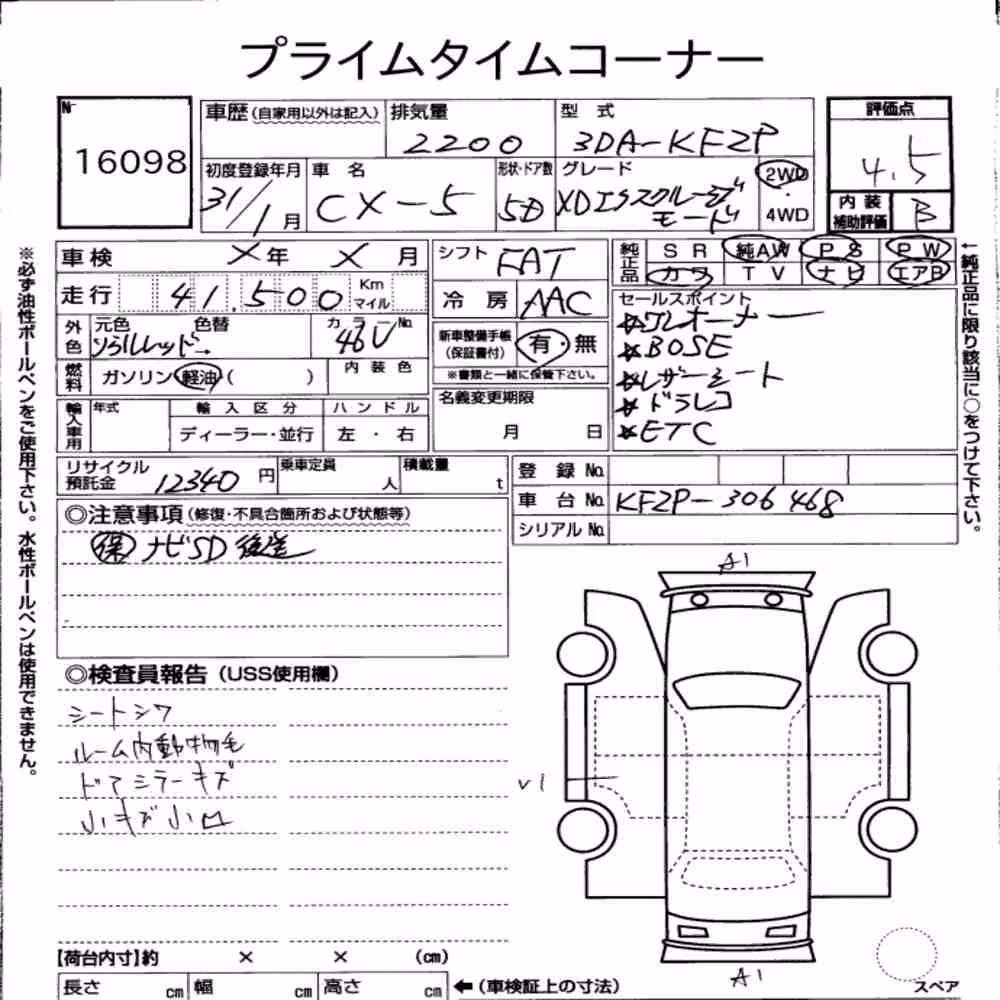 プライムタイムコーナー
№ 16098
車歴（自家用以外は記入） 排気量 2200 型式 3DA-KF2P
評価点 4.5
初度登録年月 31/1月 車名 CX-5 形状・ドア数 5D グレード XDエクスクルーシブモード 2WD・4WD
内装補助評価 B
車検 ×年 ×月 シフト FAT 純正品 SR 純AW PS PW
カワ TV ナビ エアB
走行 41,500 Km マイル 冷房 AAC
セールスポイント
☆ワンオーナー
☆BOSE
☆レザーシート
☆ドラレコ
☆ETC
外色 元色 ソウルレッド→ 色替 カラーNo. 46V
新車整備手帳（保証書付） 有・無
※書類と一緒に保管下さい。
燃料 ガソリン・軽油（ ） 内装色
名義変更期限 月 日
輸入車用 年式 輸入区分 ディーラー・並行 ハンドル 左・右
リサイクル預託金 12340円 乗車定員 人 積載量 t
登録No.
車台No. KF2P-306468
シリアルNo.
◎注意事項（修復・不具合箇所および状態等）
保 ナビSD後送
◎検査員報告（USS使用欄）
シートシワ
ルーム内動物毛
ドアミラーキズ
小キズ小凹
A1
V1
A1
スペア
【荷台内寸】約 × × （cm）
長さ cm 幅 cm 高さ cm ←（車検証上の寸法）
※必ず油性ボールペンをご使用下さい。水性ボールペンは使用できません。
←純正品に限り該当に○をつけて下さい。